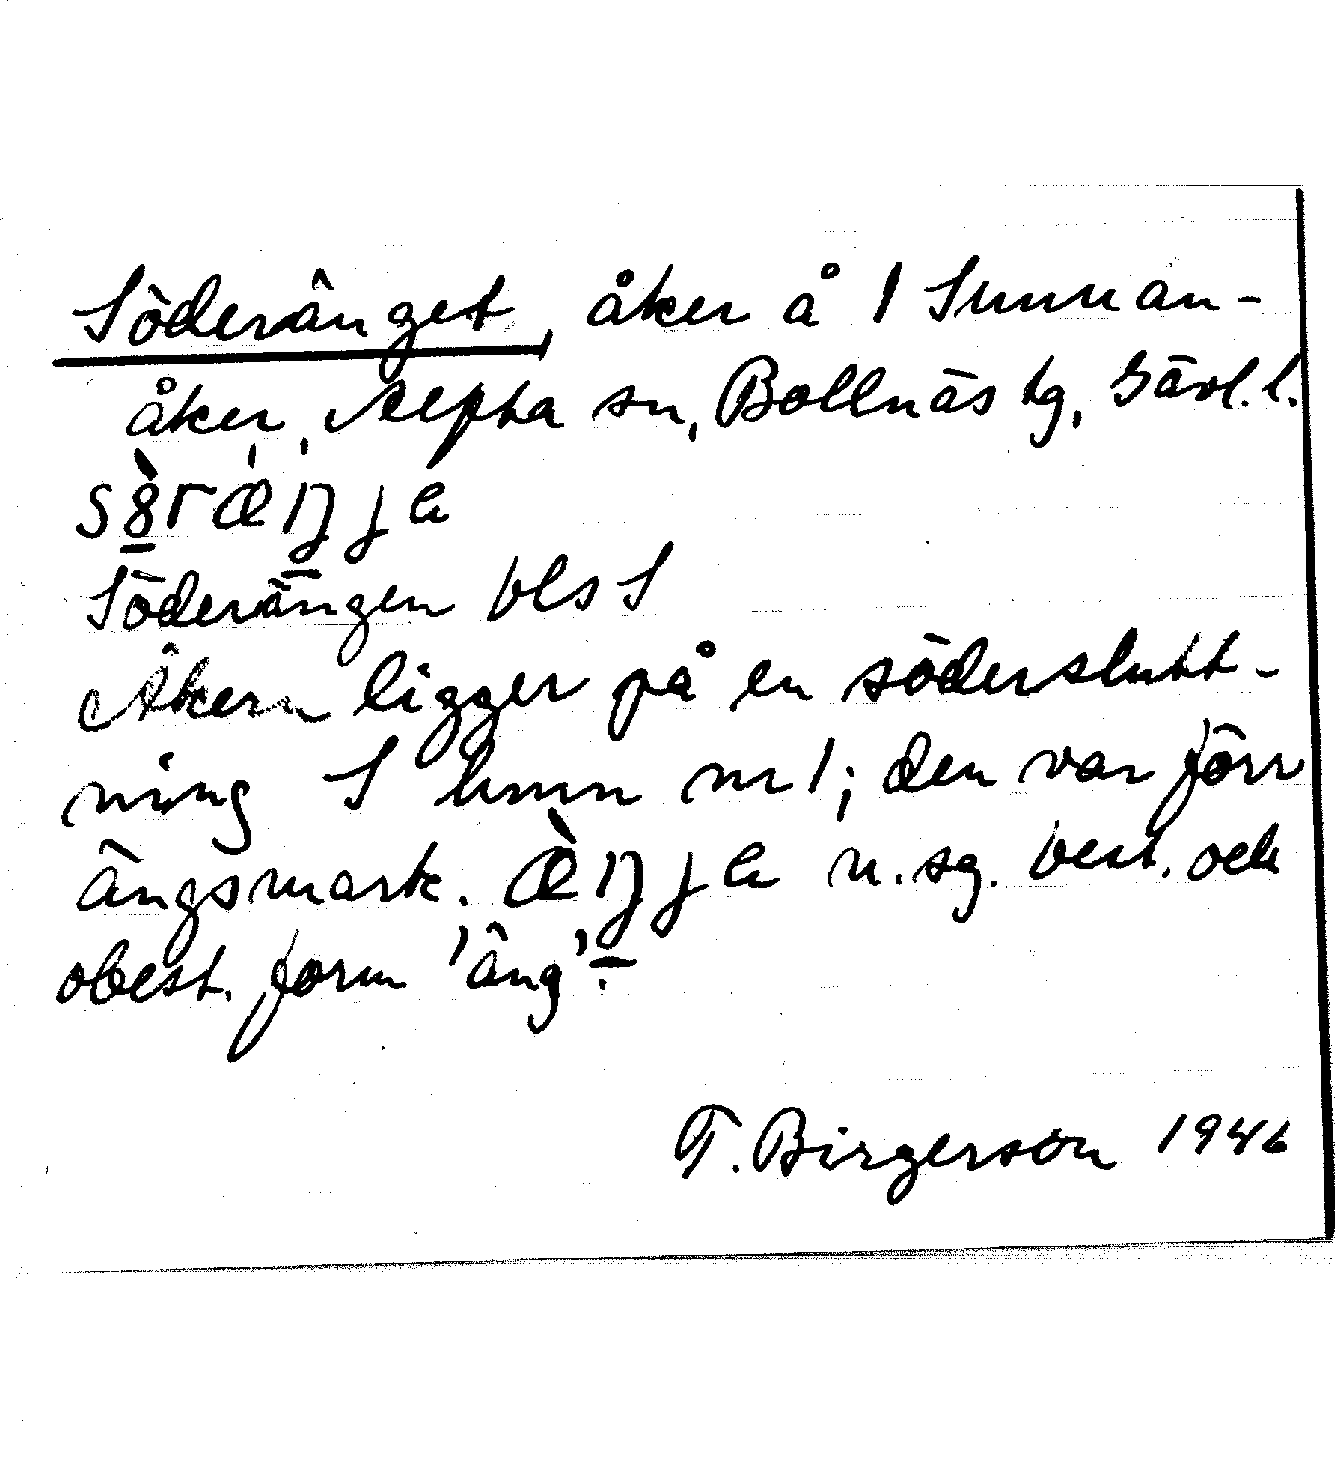 Söderänget, åker å 1 Sunnan-
åker, Alfta sn, Bollnäs tg, Gävl. l.
Söderängen bls S
Åkern ligger på en söderslutt-
ning S hmn nr 1; den var förr
ängsmark. n. sg. best. och
obest. form 'äng'.
T. Birgerson 1946